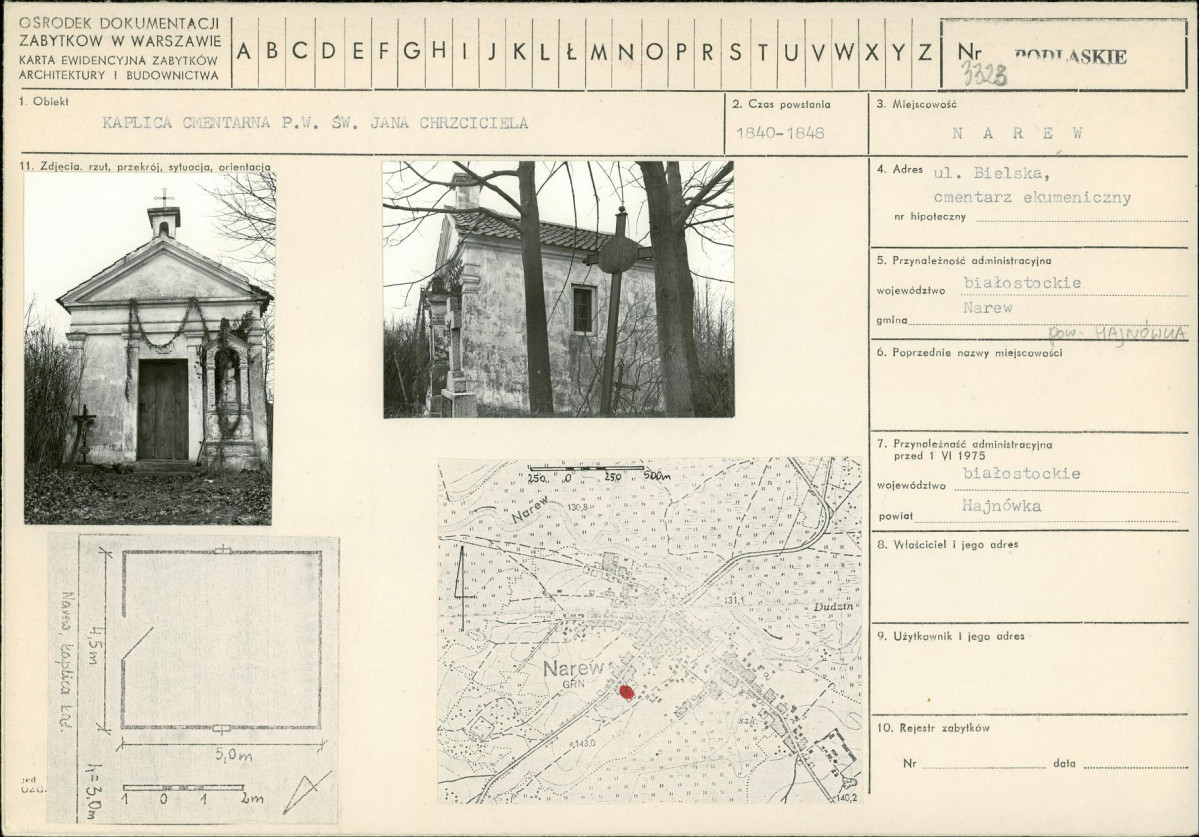 OŚRODEK DOKUMENTACJI
ZABYTKÓW W WARSZAWIE
KARTA EWIDENCYJNA ZABYTKÓW
ARCHITEKTURY I BUDOWNICTWA
A B C D E F G H I J K L Ł M N O P R S T U V W X Y Z
Nr PODLASKIE
3323
1. Obiekt
KAPLICA CMENTARNA P.W. ŚW. JANA CHRZCICIELA
2. Czas powstania
1840-1848
3. Miejscowość
N A R E W
11. Zdjęcia, rzut, przekrój, sytuacja, orientacja
4. Adres ul. Bielska,
cmentarz ekumeniczny
nr hipoteczny
5. Przynależność administracyjna
województwo białostockie
gmina Narew
pow. HAJNÓWKA
6. Poprzednie nazwy miejscowości
7. Przynależność administracyjna
przed 1 VI 1975
województwo białostockie
powiat Hajnówka
8. Właściciel i jego adres
9. Użytkownik i jego adres
10. Rejestr zabytków
Nr data
Narew, kaplica kad.
4,5m
5,0m
h=3,0m
1 0 1 2m
250 0 250 500m
Narew
130,8
131,1
Dudzin
Narew
GRN
szk.
143,0
140,2